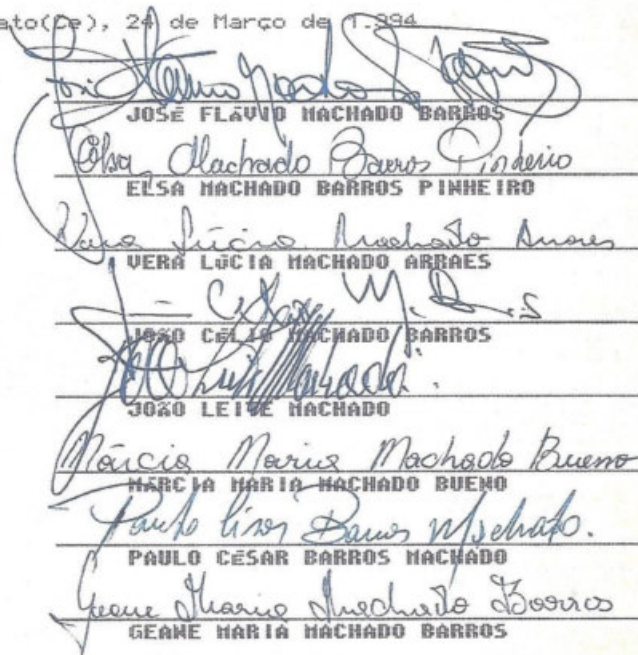 ato(Ce), 24 de Março de 1.994
JOSÉ FLÁVIO MACHADO BARROS
Elsa Machado Barros Pinheiro
ELSA MACHADO BARROS PINHEIRO
Vera Lúcia Machado Arraes
VERA LÚCIA MACHADO ARRAES
JOÃO CÉLIO MACHADO BARROS
JOÃO LEITE MACHADO
Márcia Maria Machado Bueno
MÁRCIA MARIA MACHADO BUENO
Paulo César Barros Machado.
PAULO CÉSAR BARROS MACHADO
Geane Maria Machado Barros
GEANE MARIA MACHADO BARROS